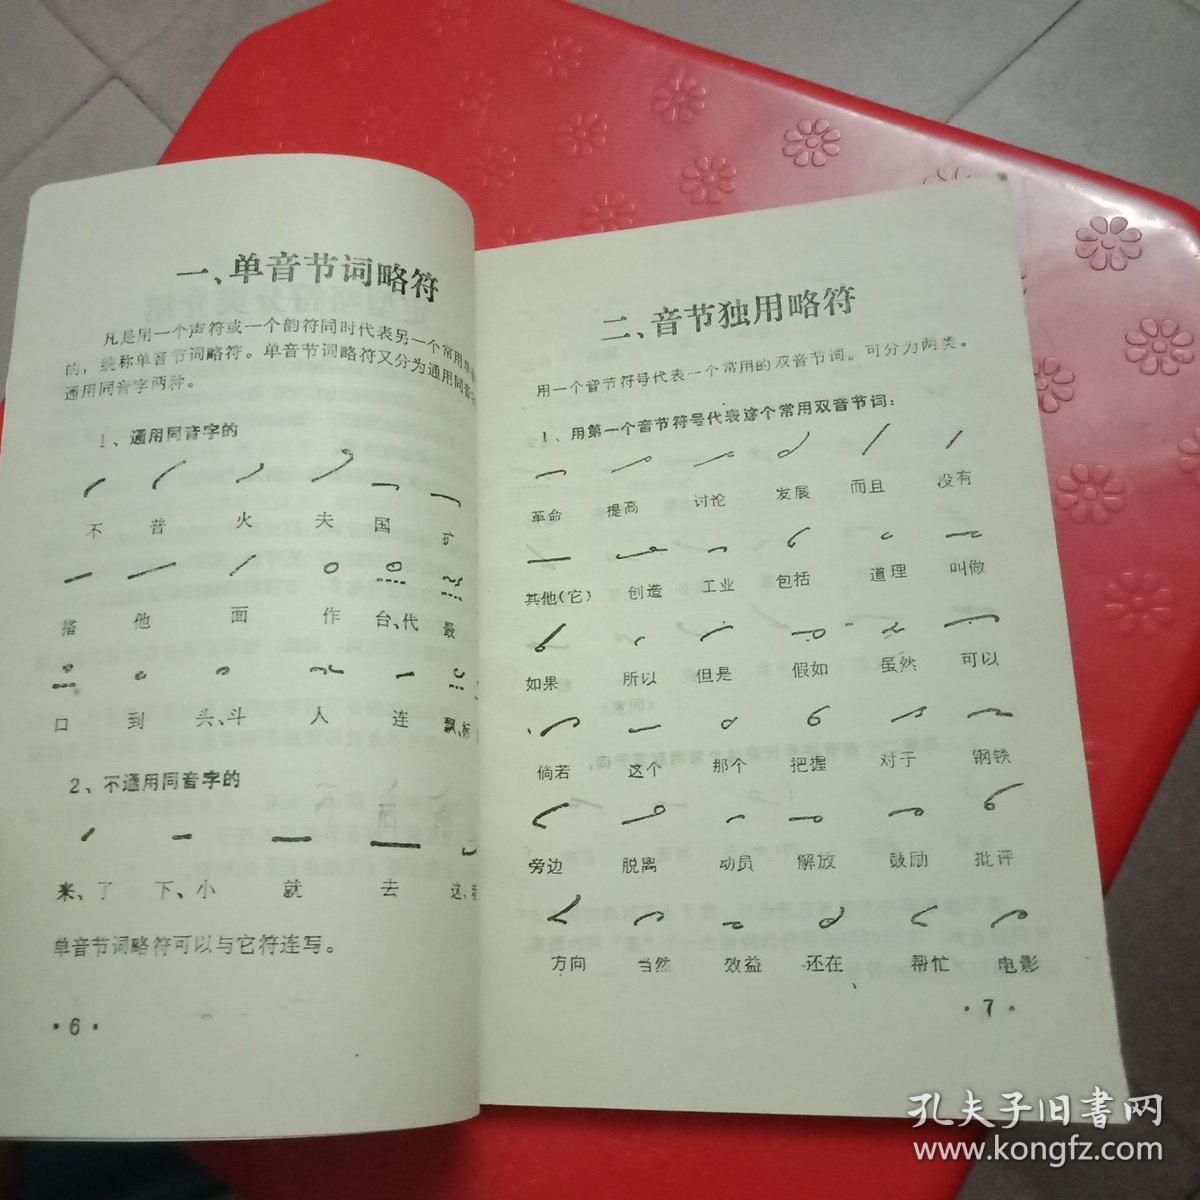 一、单音节词略符
凡是用一个声符或一个韵符同时代表另一个常用单
的，统称单音节词略符。单音节词略符又分为通用同音
通用同音字两种。
1、通用同音字的
不 普 火 夫 国 扩
搭 他 面 作 台、代 最
口 到 头、斗 人 连 飘、标
2、不通用同音字的
来、了 下、小 就 去 这、
单音节词略符可以与它符连写。
·6·
二、音节独用略符
用一个音节符号代表一个常用的双音节词。可分为两类。
1、用第一个音节符号代表这个常用双音节词：
革命 提高 讨论 发展 而且 没有
其他（它） 创造 工业 包括 道理 叫做
如果 所以 但是 假如 虽然 可以
倘若 这个 那个 把握 对于 钢铁
旁边 脱离 动员 解放 鼓励 批评
方向 当然 效益 还在 帮忙 电影
·7·
孔夫子旧书网
www.kongfz.com